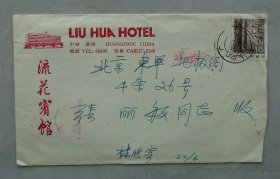 LIU HUA HOTEL
中國 廣州 GUANGZHOU CHINA
電話 TEL: 68800 電報 CABLE: 8248
流花賓館
北京東单北极阁
4条26号
張丽敏同志 收
22/2